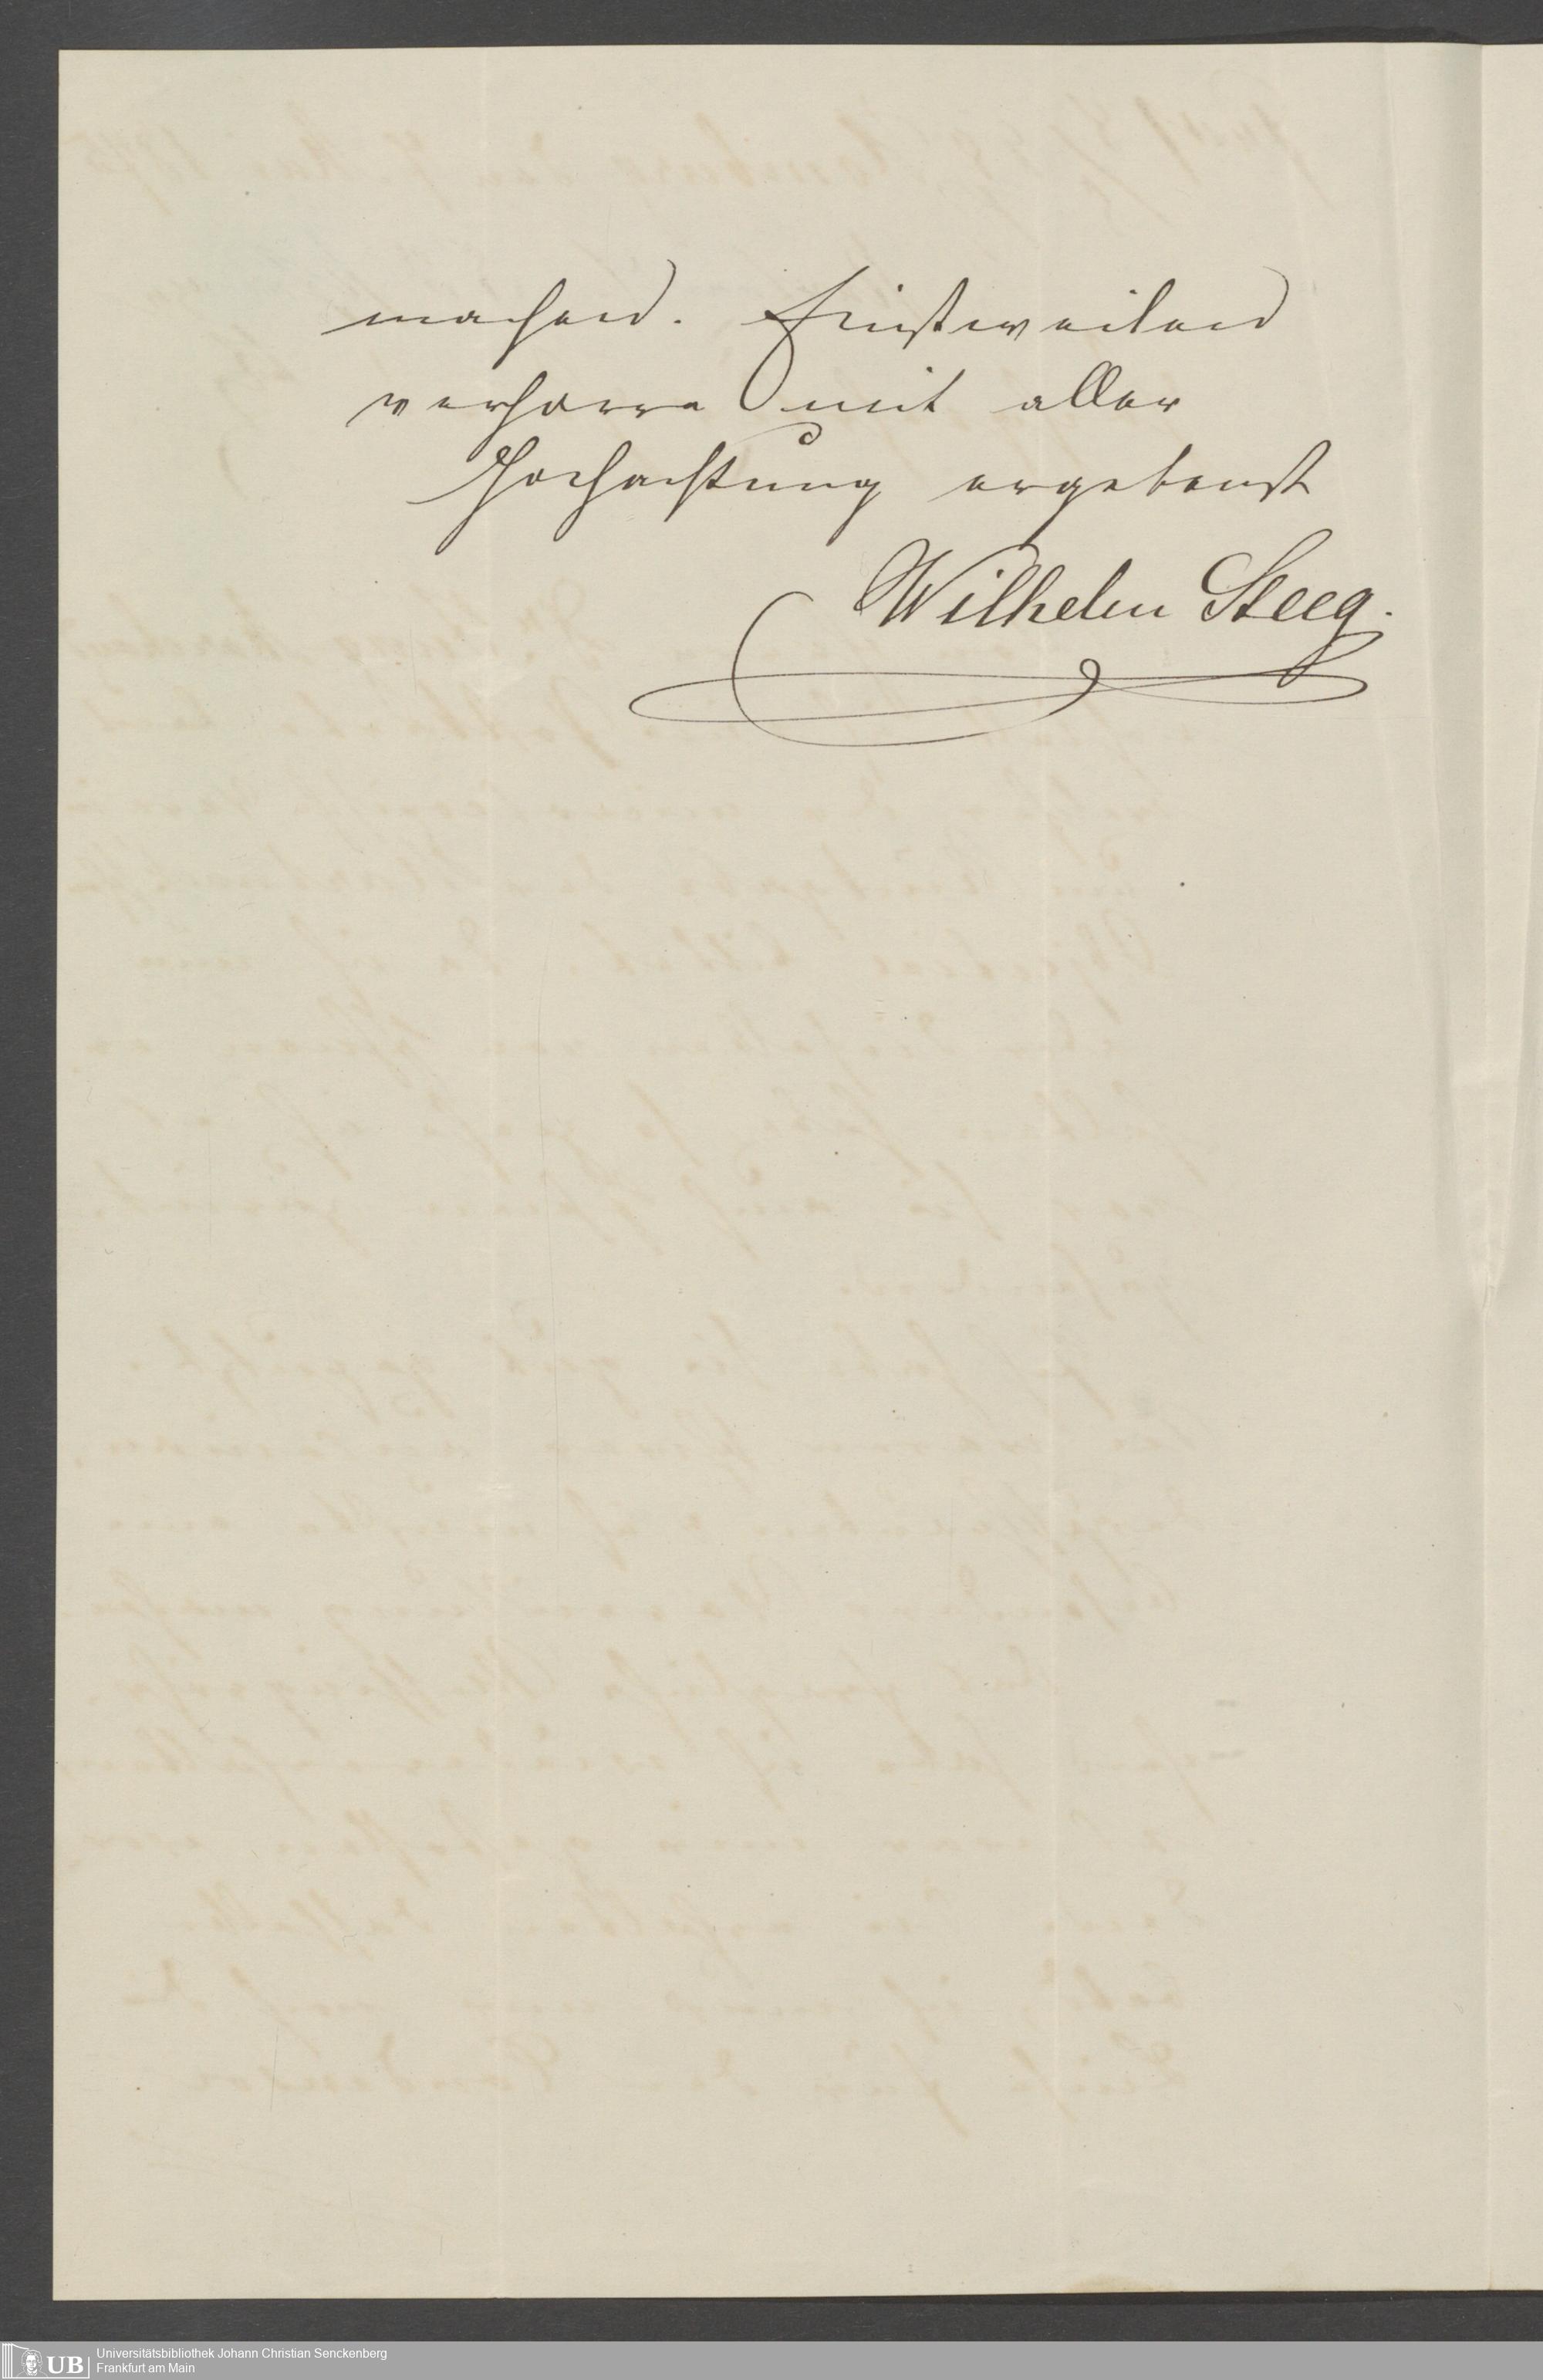 machend. Einstweilend
verharre mit aller
Hochachtung ergebenst
Wilhelm Steeg.
UB
Universitätsbibliothek Johann Christian Senckenberg
Frankfurt am Main